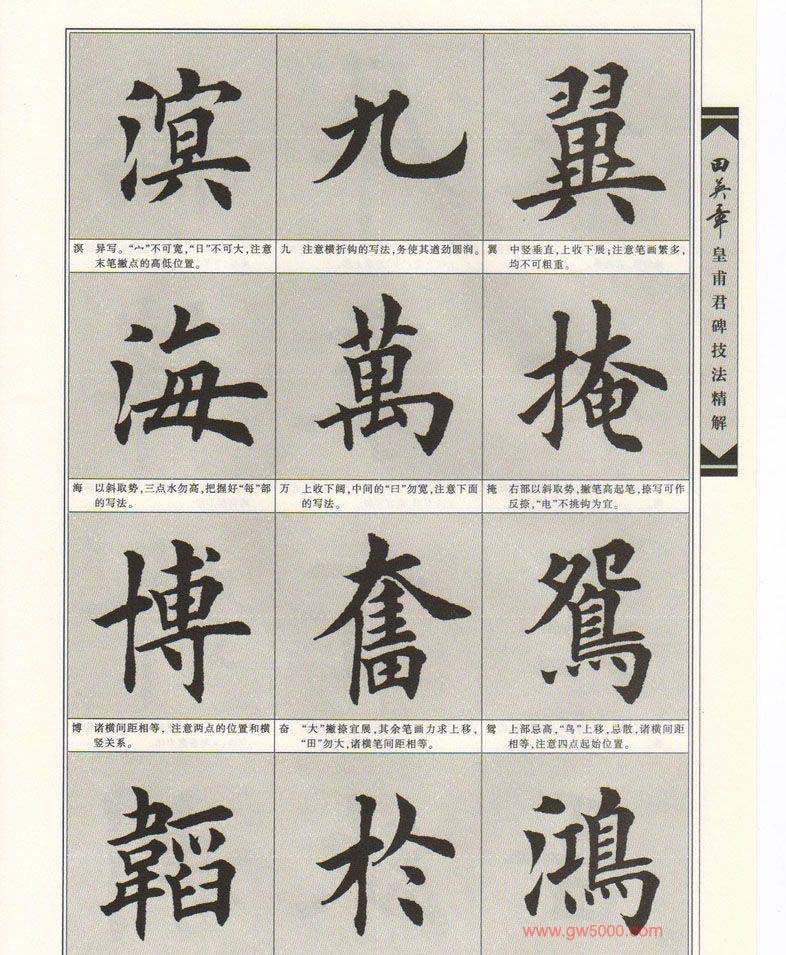 田英章
皇甫君碑技法精解
溟 九 翼
溟 异写。“宀”不可宽，“日”不可大，注意
末笔撇点的高低位置。
九 注意横折钩的写法，务使其遒劲圆润。
翼 中竖垂直，上收下展；注意笔画繁多，
均不可粗重。
海 萬 掩
海 以斜取势，三点水勿高，把握好“每”部
的写法。
万 上收下阔，中间的“曰”勿宽，注意下面
的写法。
掩 右部以斜取势，撇笔高起笔，捺写可作
反捺，“电”不挑钩为宜。
博 奮 鴛
博 诸横间距相等，注意两点的位置和横
竖关系。
奋 “大”撇捺宜展，其余笔画力求上移，
“田”勿大，诸横笔间距相等。
鸳 上部忌高，“鸟”上移，忌散，诸横间距
相等，注意四点起始位置。
韜 於 鴻
www.gw5000.com